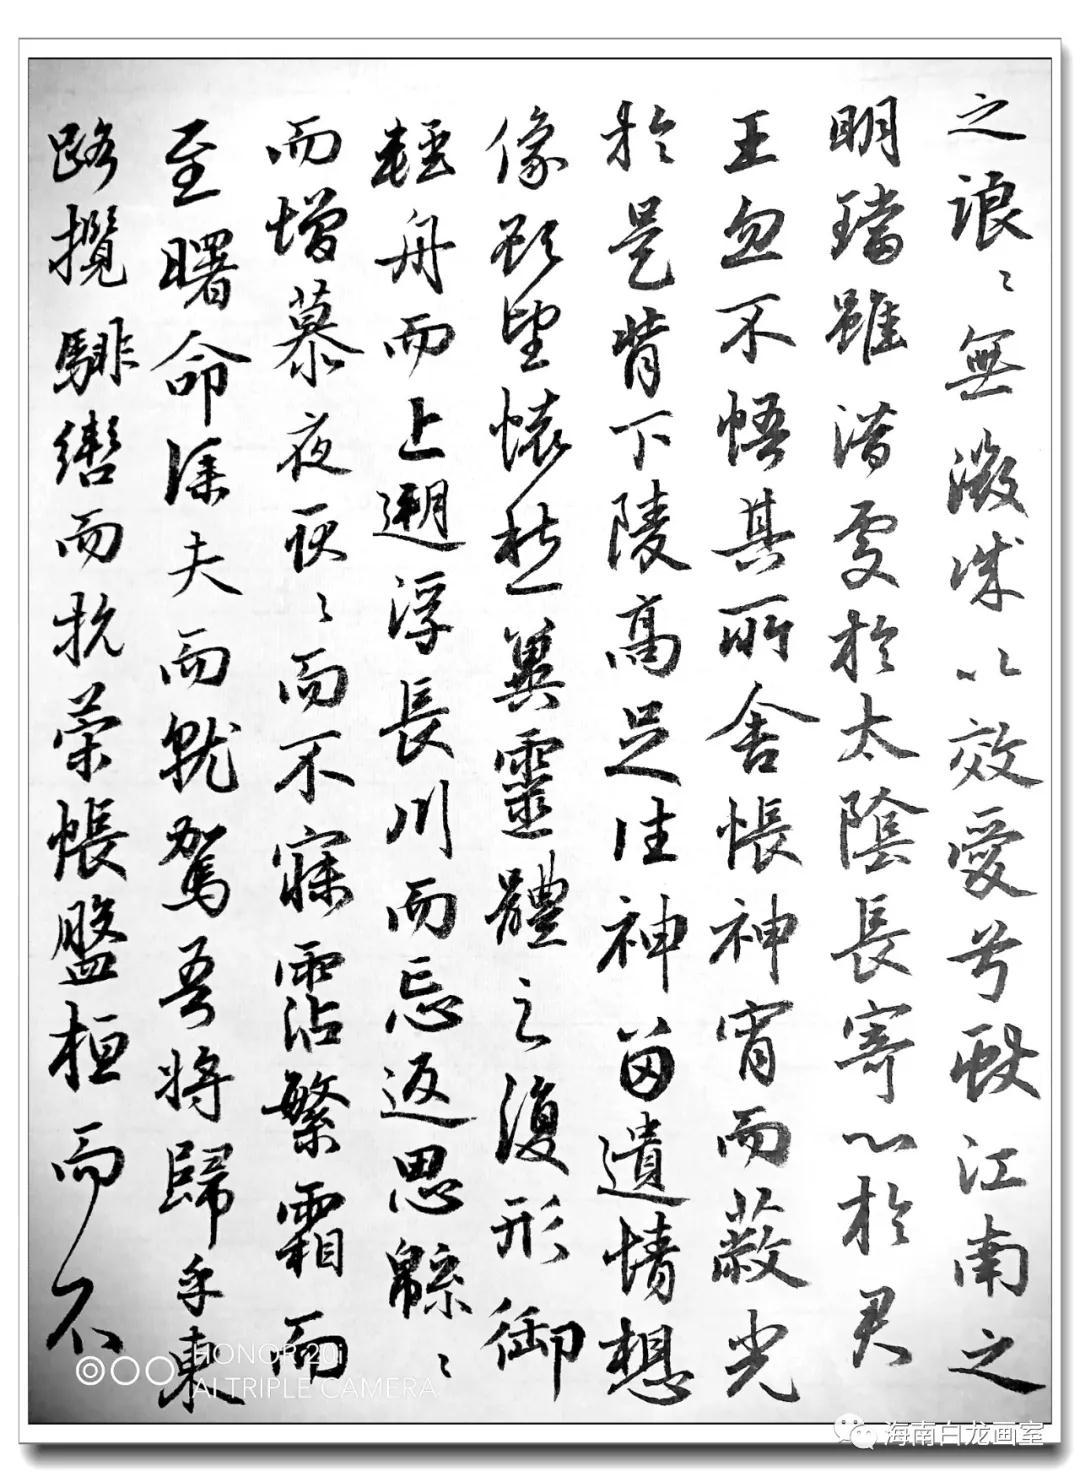 之浪〻無微誠以效愛兮獻江南之
明璫雖潛處於太陰長寄心於君
王忽不悟其所舍悵神宵而蔽光
於是背下陵高足往神留遺情想
像顧望懷愁冀靈體之復形御
輕舟而上遡浮長川而忘返思緜〻
而增慕夜耿〻而不寐霑繁霜而
至曙命僕夫而就駕吾將歸乎東
路攬騑轡而抗策悵盤桓而不
HONOR 20i
AI TRIPLE CAMERA
海南白龙画室